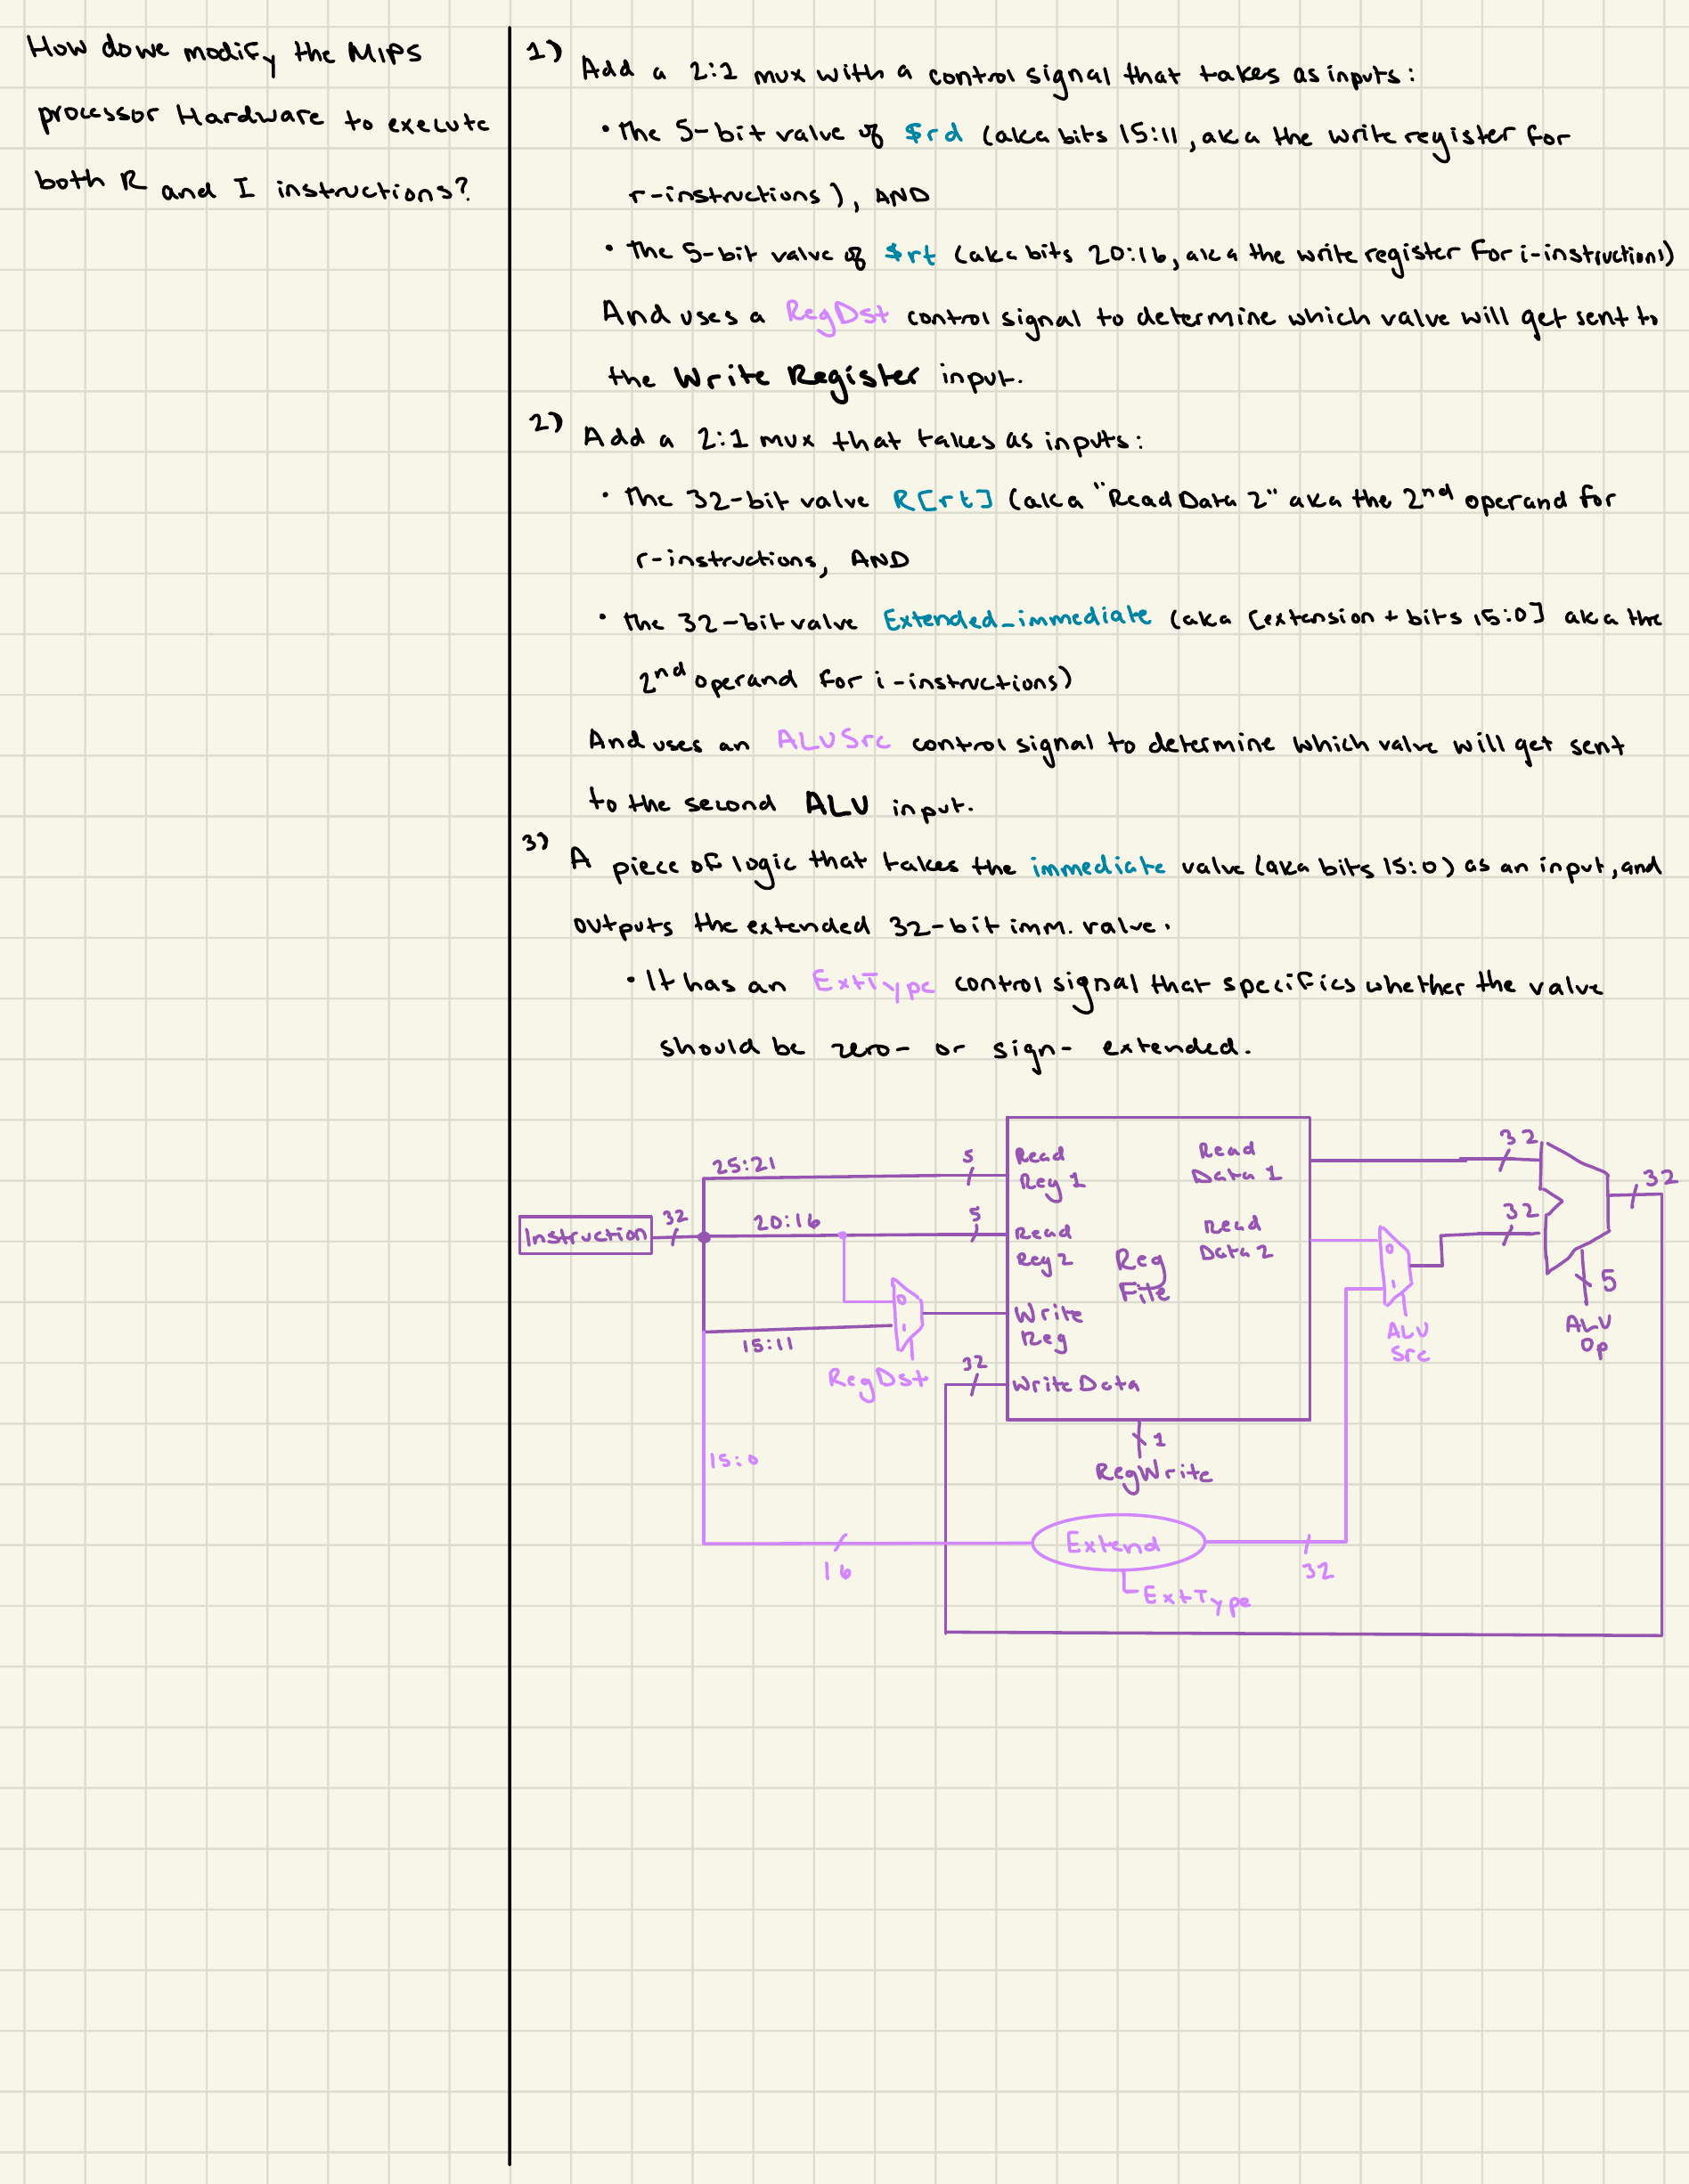 How do we modify the MIPS
processor Hardware to execute
both R and I instructions?
1) Add a 2:1 mux with a control signal that takes as inputs:
• The 5-bit value of $rd (aka bits 15:11, aka the write register for
r-instructions), AND
• The 5-bit value of $rt (aka bits 20:16, aka the write register for i-instructions)
And uses a RegDst control signal to determine which value will get sent to
the Write Register input.
2) Add a 2:1 mux that takes as inputs:
• The 32-bit value R[rt] (aka "Read Data 2" aka the 2nd operand for
r-instructions, AND
• The 32-bit value Extended_immediate (aka [extension + bits 15:0] aka the
2nd operand for i-instructions)
And uses an ALUSrc control signal to determine which value will get sent
to the second ALU input.
3) A piece of logic that takes the immediate value (aka bits 15:0) as an input, and
outputs the extended 32-bit imm. value.
• It has an ExtType control signal that specifies whether the value
should be zero- or sign- extended.
Instruction
32
25:21
5
20:16
5
15:11
15:0
0
1
RegDst
32
Read
Reg 1
Read
Reg 2
Write
Reg
Write Data
Reg
File
Read
Data 1
Read
Data 2
1
RegWrite
16
Extend
ExtType
32
0
1
ALU
Src
32
32
5
ALU
Op
32